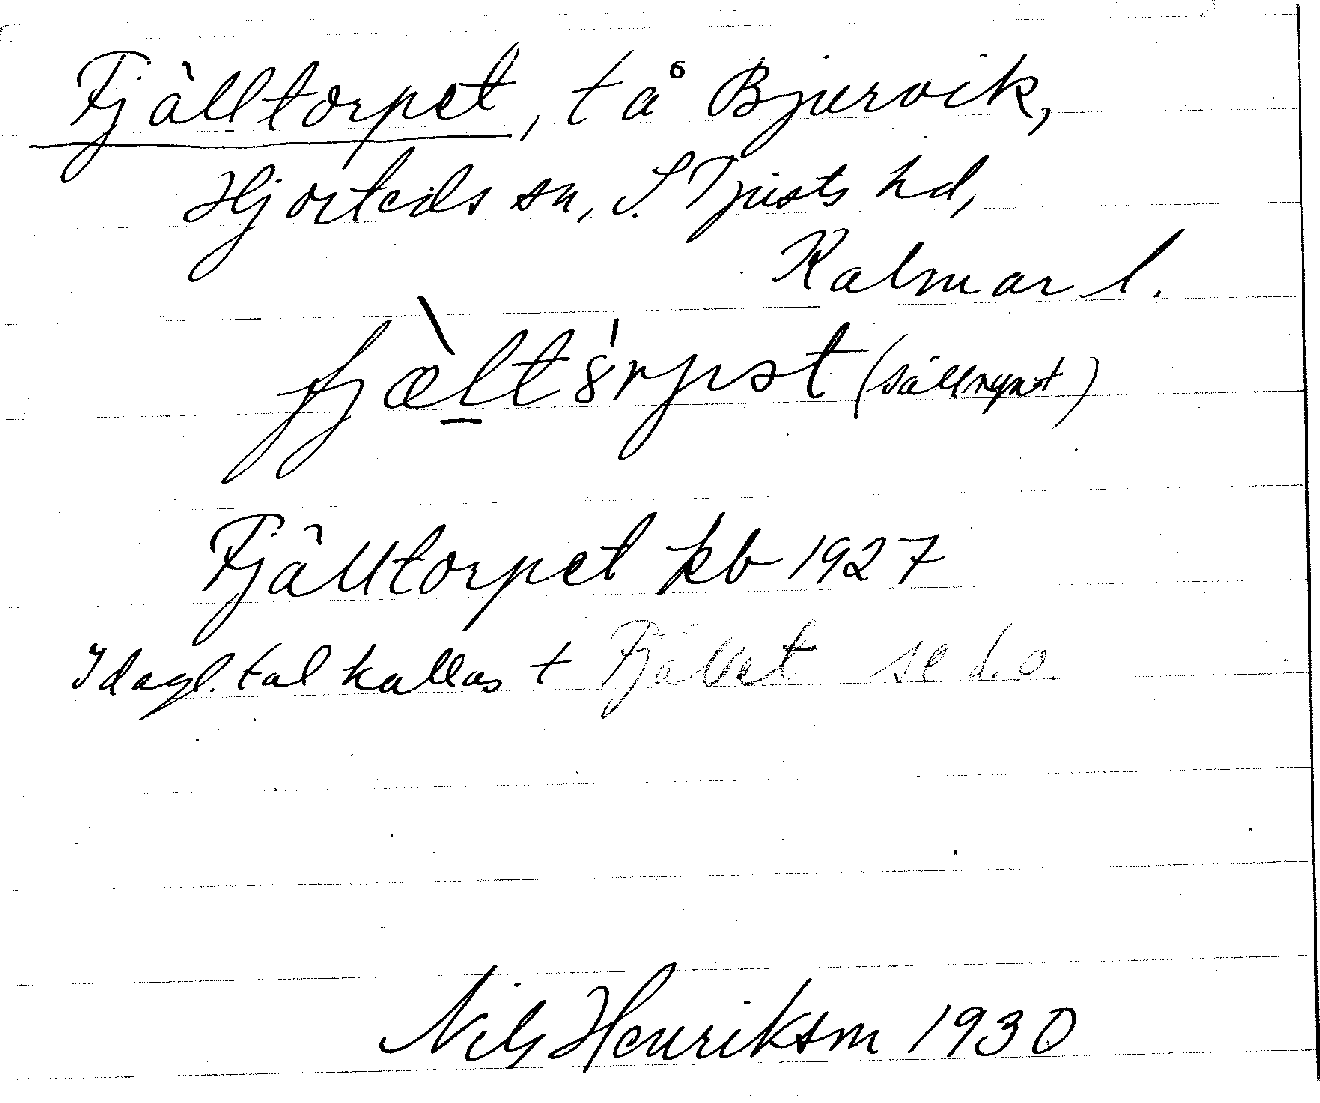 Fjälltorpet, t å Bjurvik,
Hjorteds sn, S. Tjusts hd,
Kalmar l.
fjæ̀ltɔ́rpət (sällnynt)
Fjälltorpet kb 1927
I dagl. tal kallas t Fjället se d.o.
Nils Henrikson 1930